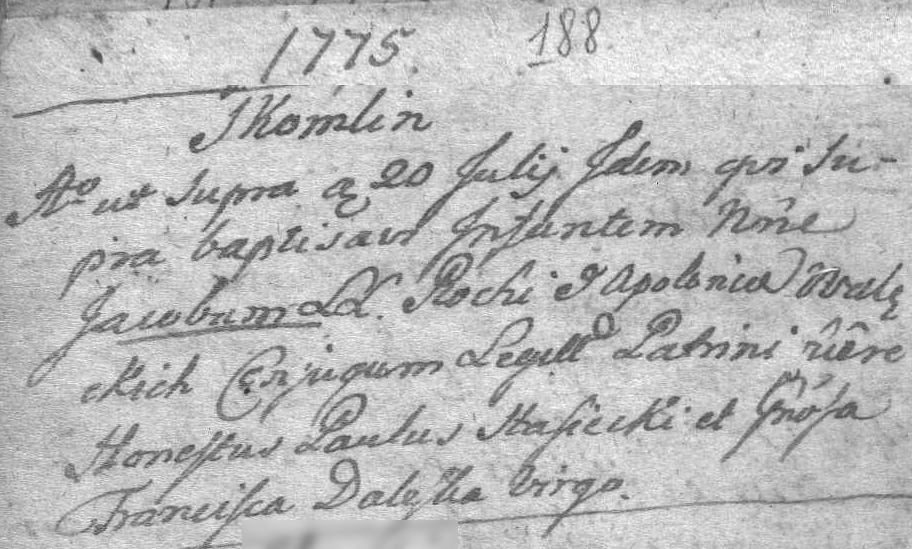 1775. 188
Skomlin
A̅o̅ ut supra ą 20 Julij Idem qvi su-
pra baptisavi Infantem Nõne
Jacobum LL. Rochi & Apolonia
ckich Conjugum Legitt̅ Patrini fuêre
Honestus Paulus Stasiecki et
Francisca Virgo.